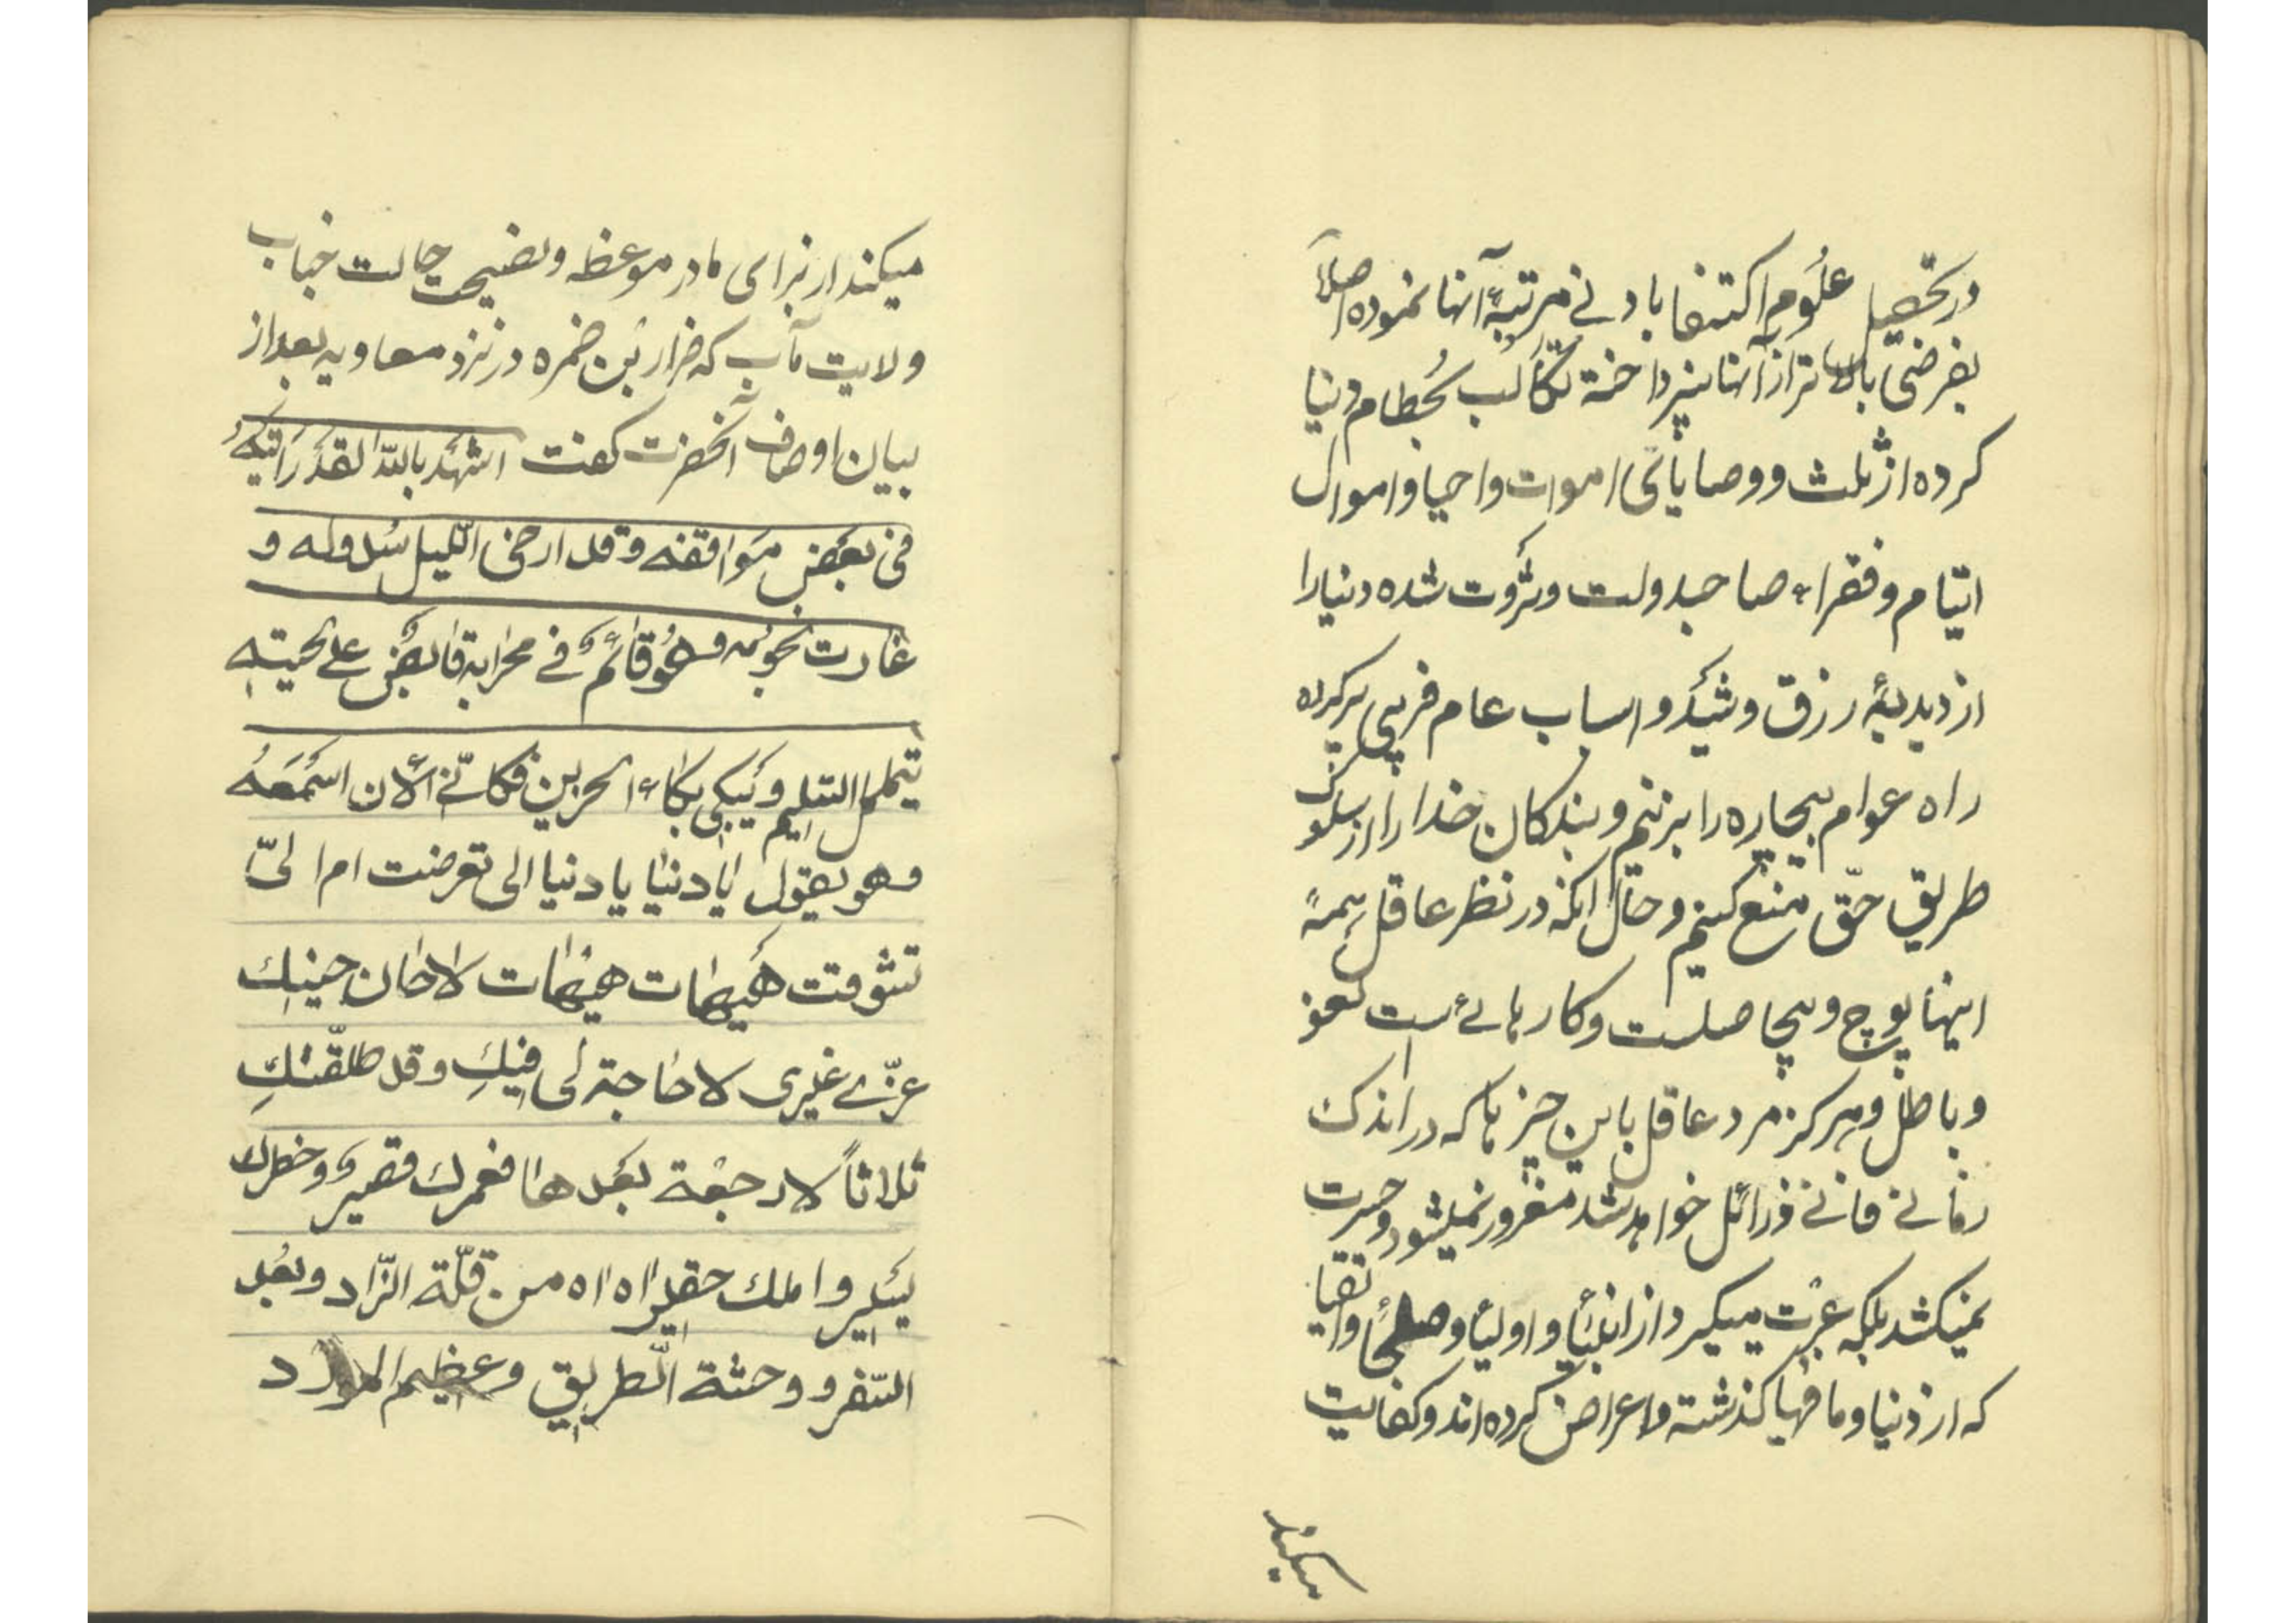 در تحصیل علوم اکتفا بادنی مرتبهٔ آنها نموده اصلاً
بفرضی بالاتر از آنها نپرداخته تکالب بحطام دنیا
کرده از ثلث و وصایای اموات و احیا و اموال
ایتام و فقراء صاحبدولت و ثروت شده دنیا را
از دبدبهٔ رزق و شید و اسباب عام فریبی پر کرده
راه عوام بیچاره را بزنیم و بندکان خدا را از سلوک
طریق حقّ منع کنیم و حال آنکه در نظر عاقل همهٔ
اینها پوچ و بیحاصلست و کارهائی است لغو
و باطل و هرکز مرد عاقل باین چیزها که در اندک
زمانی فانی و زائل خواهد شد مغرور نمیشود و حسرت
نمیکشد بلکه عبرت میکیرد از انبیا و اولیا و صلحا و اتقیا
که از دنیا و ما فیها کذشته و اعراض کرده‌اند و کفایت
میکند
میکند از برای ما در موعظه و نصیحت حالت جناب
ولایت مآب که ضرار بن ضمره در نزد معاویه بعد از
بیان اوصاف آنحضرت کفت اشهد بالله لقد رایته
فی بعض مواقفه و قد ارخی اللّیل سدوله و
غارت نجومه و هو قائمٌ فی محرابه قابض علی لحیته
یتململ السّلیم و یبکی بکاء الحزین فکانّی الآن اسمعه
و هو یقول یا دنیا یا دنیا الی تعرضت ام الیّ
تشوقت هیهات هیهات لا حان حینك
غرّی غیری لا حاجة لی فیكِ و قد طلّقتكِ
ثلاثاً لا رجعة بعدها فعمرك قصیرٌ و خطرك
یسیر و املك حقیر اه اه من قلّة الزّاد و بعد
السّفر و وحشة الطّریق و عظیم المورد